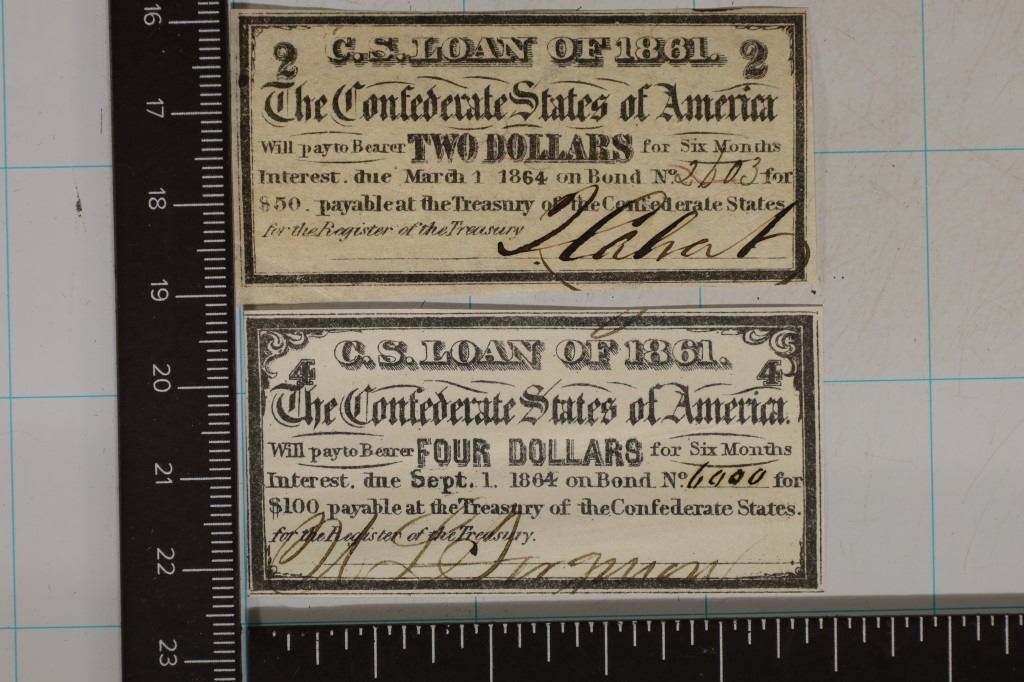 16
17
18
19
20
21
22
23
2 C. S. LOAN OF 1861. 2
The Confederate States of America
Will pay to Bearer TWO DOLLARS for Six Months
Interest. due March 1 1864 on Bond No. 2603 for
$50. payable at the Treasury of the Confederate States
for the Register of the Treasury
C. S. LOAN OF 1861.
4 4
The Confederate States of America.
Will pay to Bearer FOUR DOLLARS for Six Months
Interest. due Sept. 1. 1864 on Bond No. for
$100 payable at the Treasury of the Confederate States.
for the Register of the Treasury.